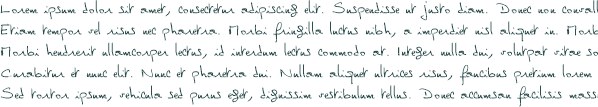 Lorem ipsum dolor sit amet, consectetur adipiscing elit. Suspendisse ut justo diam. Donec non convall
Etiam tempor vel risus nec pharetra. Morbi fringilla luctus nibh, a imperdiet nisl aliquet in. Morb
Morbi hendrerit ullamcorper lectus, id interdum lectus commodo at. Integer nulla dui, volutpat vitae so
Curabitur et nunc elit. Nunc et pharetra dui. Nullam aliquet ultrices risus, faucibus pretium lorem
Sed tortor ipsum, vehicula sed purus eget, dignissim vestibulum tellus. Donec accumsan facilisis mass